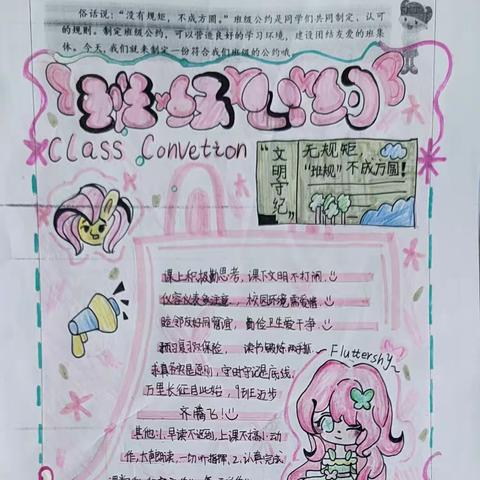 俗话说:“没有规矩，不成方圆。”班级公约是同学们共同制定、认可
的规则。制定班级公约，可以营造良好的学习环境，建设团结友爱的班集
体。今天，我们就来制定一份符合我们班级的公约哦
班级公约
Class Convetion
“文明守纪”
无规矩
“班规”不成方圆!
课上积极勤思考，课下文明不打闹
仪容仪表免注意，校园环境需爱惜
睦邻友好同窗宜，勤俭卫生爱干净
预习复习双保险，读书锻炼两手抓
求真务实是原则，守时守记是底线
万里长征自此始，9班迈步
齐腾飞!
~ Fluttershy ~
其他:1.早读不迟到，上课不搞小动
作，大声朗读，一切听指挥，2.认真完成